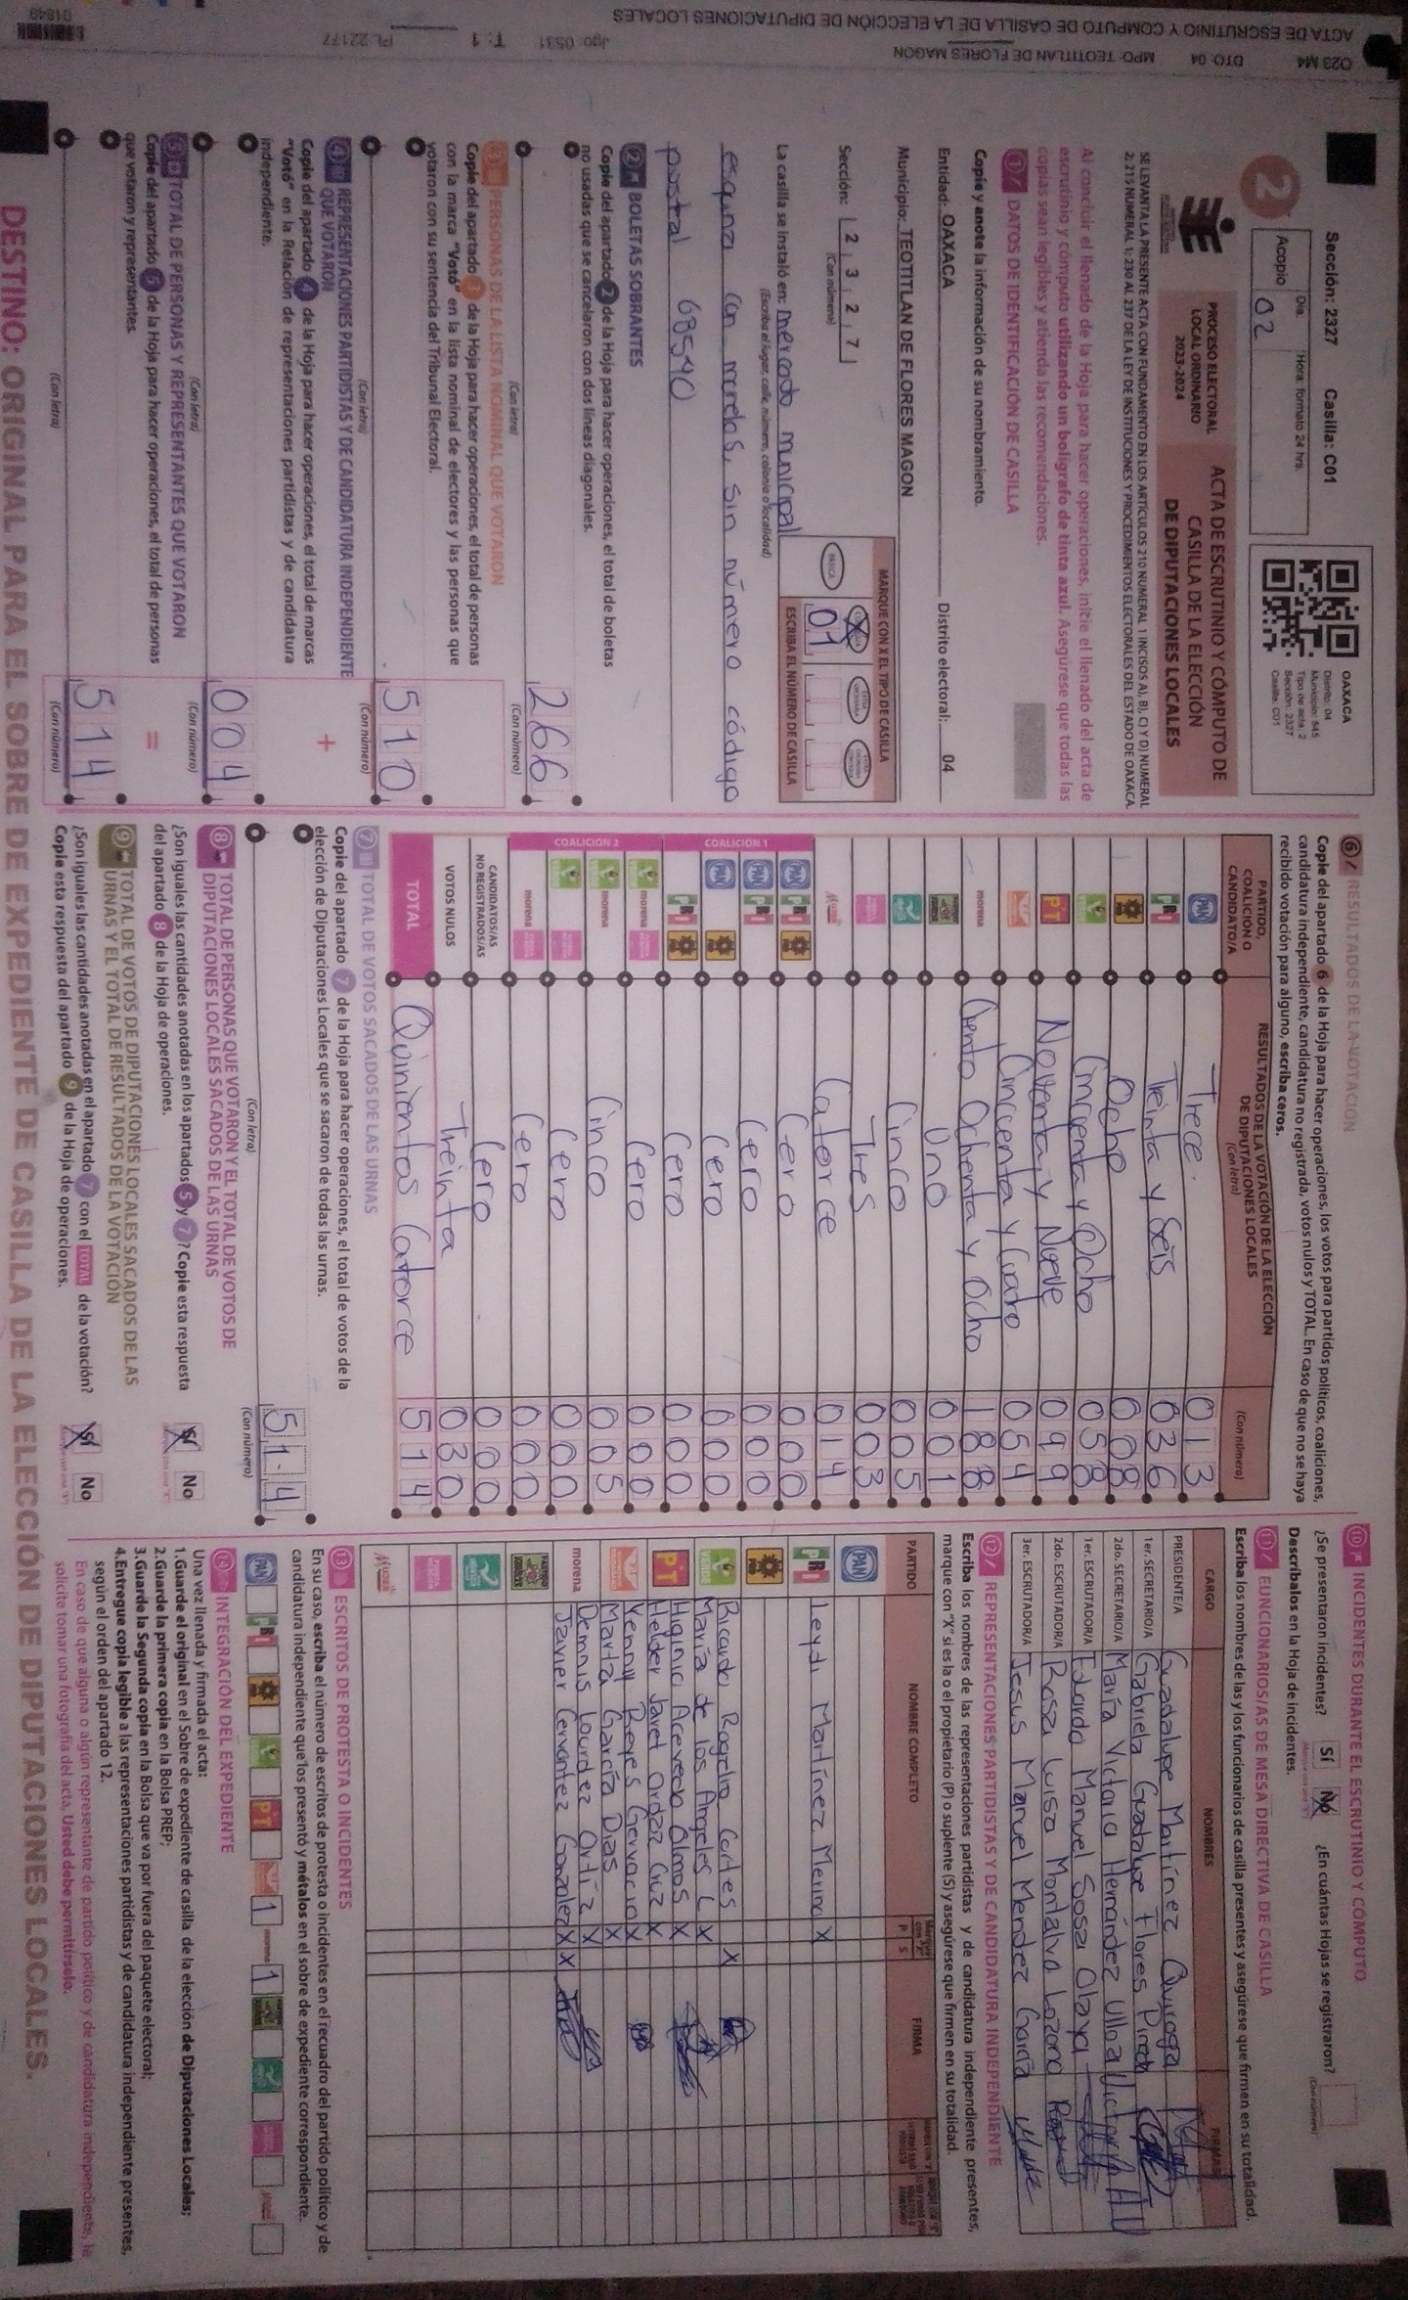 Sección: 2327 Casilla: C01
OAXACA
Distrito: 04
Municipio: 545
Tipo de acta: 2
Sección: 2327
Casilla: C01
2
Acopio
Día
Hora: formato 24 hrs.
02
PROCESO ELECTORAL
LOCAL ORDINARIO
2023-2024
ACTA DE ESCRUTINIO Y CÓMPUTO DE
CASILLA DE LA ELECCIÓN
DE DIPUTACIONES LOCALES
SE LEVANTA LA PRESENTE ACTA CON FUNDAMENTO EN LOS ARTÍCULOS 210 NUMERAL 1 INCISOS A), B), C) Y D) NUMERAL
2; 215 NUMERAL 1; 230 AL 237 DE LA LEY DE INSTITUCIONES Y PROCEDIMIENTOS ELECTORALES DEL ESTADO DE OAXACA.
Al concluir el llenado de la Hoja para hacer operaciones, inicie el llenado del acta de
escrutinio y cómputo utilizando un bolígrafo de tinta azul. Asegúrese que todas las
copias sean legibles y atienda las recomendaciones.
1 DATOS DE IDENTIFICACIÓN DE CASILLA
Copie y anote la información de su nombramiento.
Entidad: OAXACA Distrito electoral: 04
Municipio: TEOTITLAN DE FLORES MAGON
Sección: 2 3 2 7
(Con número)
MARQUE CON X EL TIPO DE CASILLA
BÁSICA
X
01
ESCRIBA EL NÚMERO DE CASILLA
La casilla se instaló en: mercado municipal
(Escriba el lugar, calle, número, colonia o localidad)
esquina con morelos, sin número código
postal 68540
2 BOLETAS SOBRANTES
Copie del apartado 2 de la Hoja para hacer operaciones, el total de boletas
no usadas que se cancelaron con dos líneas diagonales.
266
(Con letra) (Con número)
3 PERSONAS DE LA LISTA NOMINAL QUE VOTARON
Copie del apartado 3 de la Hoja para hacer operaciones, el total de personas
con la marca "Votó" en la lista nominal de electores y las personas que
votaron con su sentencia del Tribunal Electoral.
510
(Con letra) (Con número)
4 REPRESENTACIONES PARTIDISTAS Y DE CANDIDATURA INDEPENDIENTE
QUE VOTARON
Copie del apartado 4 de la Hoja para hacer operaciones, el total de marcas
"Votó" en la Relación de representaciones partidistas y de candidatura
independiente.
+
004
(Con letra) (Con número)
5 TOTAL DE PERSONAS Y REPRESENTANTES QUE VOTARON
Copie del apartado 5 de la Hoja para hacer operaciones, el total de personas
que votaron y representantes.
=
514
(Con letra) (Con número)
6 RESULTADOS DE LA VOTACIÓN
Copie del apartado 6 de la Hoja para hacer operaciones, los votos para partidos políticos, coaliciones,
candidatura independiente, candidatura no registrada, votos nulos y TOTAL. En caso de que no se haya
recibido votación para alguno, escriba ceros.
PARTIDO, COALICIÓN O CANDIDATO/A
RESULTADOS DE LA VOTACIÓN DE LA ELECCIÓN
DE DIPUTACIONES LOCALES
(Con letra) (Con número)
PAN Trece. 013
PRI Treinta y Seis 036
PRD Ocho 008
VERDE Cincuenta y Ocho 058
PT Noventa y Nueve 099
Cincuenta y Cuatro 054
morena Ciento Ochenta y Ocho 188
Uno 001
Cinco 005
Tres 003
Catorce 014
COALICIÓN 1
PAN PRI PRD Cero 000
PAN PRI Cero 000
PAN PRD Cero 000
PRI PRD Cero 000
COALICIÓN 2
VERDE morena Cero 000
VERDE morena Cinco 005
VERDE Cero 000
morena Cero 000
CANDIDATOS/AS
NO REGISTRADOS/AS Cero 000
VOTOS NULOS Treinta 030
TOTAL Quinientos Catorce 514
7 TOTAL DE VOTOS SACADOS DE LAS URNAS
Copie del apartado 7 de la Hoja para hacer operaciones, el total de votos de la
elección de Diputaciones Locales que se sacaron de todas las urnas.
514
(Con letra) (Con número)
8 TOTAL DE PERSONAS QUE VOTARON Y EL TOTAL DE VOTOS DE
DIPUTACIONES LOCALES SACADOS DE LAS URNAS
¿Son iguales las cantidades anotadas en los apartados 5 y 7? Copie esta respuesta
del apartado 8 de la Hoja de operaciones.
Sí No
9 TOTAL DE VOTOS DE DIPUTACIONES LOCALES SACADOS DE LAS
URNAS Y EL TOTAL DE RESULTADOS DE LA VOTACIÓN
¿Son iguales las cantidades anotadas en el apartado 7 con el TOTAL de la votación?
Copie esta respuesta del apartado 9 de la Hoja de operaciones.
Sí No
10 INCIDENTES DURANTE EL ESCRUTINIO Y CÓMPUTO
¿Se presentaron incidentes? Sí No ¿En cuántas Hojas se registraron?
(Con número)
Descríbalos en la Hoja de incidentes.
11 FUNCIONARIOS/AS DE MESA DIRECTIVA DE CASILLA
Escriba los nombres de las y los funcionarios de casilla presentes y asegúrese que firmen en su totalidad.
CARGO NOMBRES FIRMAS
PRESIDENTE/A Guadalupe Martínez Quiroga
1er. SECRETARIO/A Gabriela Guadalupe Flores Pineda
2do. SECRETARIO/A María Victoria Hernández Ulloa
1er. ESCRUTADOR/A Eduardo Manuel Sosa Olaya
2do. ESCRUTADOR/A Rosa Luisa Montalvo Lozano
3er. ESCRUTADOR/A Jesus Manuel Mendez García
12 REPRESENTACIONES PARTIDISTAS Y DE CANDIDATURA INDEPENDIENTE
Escriba los nombres de las representaciones partidistas y de candidatura independiente presentes,
marque con "X" si es la o el propietario (P) o suplente (S) y asegúrese que firmen en su totalidad.
PARTIDO NOMBRE COMPLETO P S FIRMA
PAN
PRI Leydi Martínez Merino X
PRD
VERDE Ricardo Rogelio Cortes X
María de los Angeles L X
PT Higinio Acevedo Olmos X
Helder Javet Ordaz Cruz X
Yenny Reyes Gervacio X
Marta García Dias X
morena Demnis Lourdez Ortíz X
Javier Cervantez Gonzalez X X
13 ESCRITOS DE PROTESTA O INCIDENTES
En su caso, escriba el número de escritos de protesta o incidentes en el recuadro del partido político y de
candidatura independiente que los presentó y métalos en el sobre de expediente correspondiente.
PAN PRI PRD VERDE PT 1 morena 1
14 INTEGRACIÓN DEL EXPEDIENTE
Una vez llenada y firmada el acta:
1.Guarde el original en el Sobre de expediente de casilla de la elección de Diputaciones Locales;
2.Guarde la primera copia en la Bolsa PREP;
3.Guarde la Segunda copia en la Bolsa que va por fuera del paquete electoral;
4.Entregue copia legible a las representaciones partidistas y de candidatura independiente presentes,
según el orden del apartado 12.
En caso de que alguna o algún representante de partido político y de candidatura independiente, le
solicite tomar una fotografía del acta, Usted debe permitírselo.
DESTINO: ORIGINAL PARA EL SOBRE DE EXPEDIENTE DE CASILLA DE LA ELECCIÓN DE DIPUTACIONES LOCALES.
O23 M4 DTO: 04 MPO: TEOTITLAN DE FLORES MAGON Jgo: 0531 T: 1 PL: 22177
ACTA DE ESCRUTINIO Y COMPUTO DE CASILLA DE LA ELECCIÓN DE DIPUTACIONES LOCALES
01849